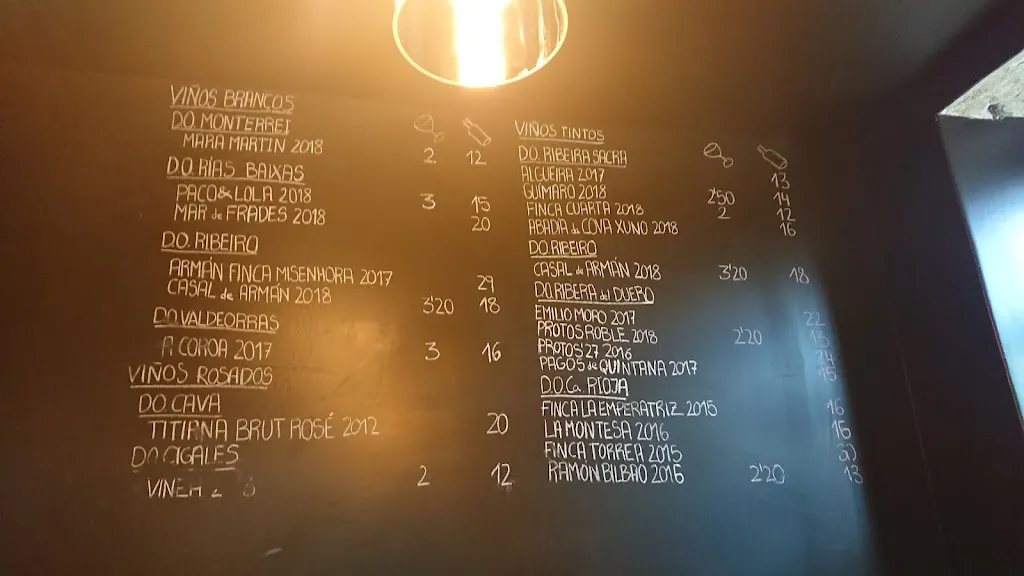 VIÑOS BRANCOS
D.O. MONTERREI
MARA MARTIN 2018 2 12
D.O. RÍAS BAIXAS
PACO & LOLA 2018 3 15
MAR de FRADES 2018 20
D.O. RIBEIRO
ARMÁN FINCA MISENHORA 2017 29
CASAL de ARMÁN 2018 3'20 18
D.O. VALDEORRAS
A COROA 2017 3 16
VIÑOS ROSADOS
D.O. CAVA
TITIANA BRUT ROSÉ 2012 20
D.O. CIGALES
2 12
VIÑOS TINTOS
D.O. RIBEIRA SACRA
ALGUEIRA 2017 13
GUIMARO 2018 2'50 14
FINCA CUARTA 2018 2 12
ABADIA da COVA XUNO 2018 16
D.O. RIBEIRO
CASAL de ARMÁN 2018 3'20 18
D.O. RIBERA del DUERO
EMILIO MORO 2017 22
PROTOS ROBLE 2018 2'20 15
PROTOS 27 2016 24
PAGOS de QUINTANA 2017 15
D.O.Ca. RIOJA
FINCA LA EMPERATRIZ 2015 16
LA MONTESA 2016 16
FINCA TORREA 2015
RAMÓN BILBAO 2016 2'20 13